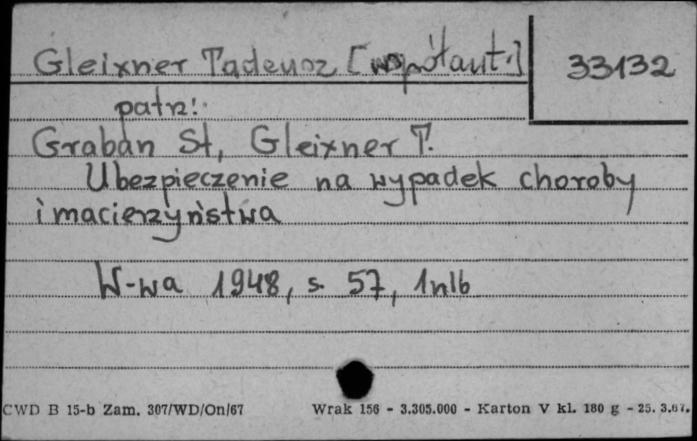 Gleixner Tadeusz [współaut.] 33132
patrz:
Graban St, Gleixner T.
Ubezpieczenie na wypadek choroby
i macierzyństwa
W-wa 1948, s. 57, 1nlb
CWD B 15-b Zam. 307/WD/On/67 Wrak 156 - 3.305.000 - Karton V kl. 180 g - 25. 3.67.